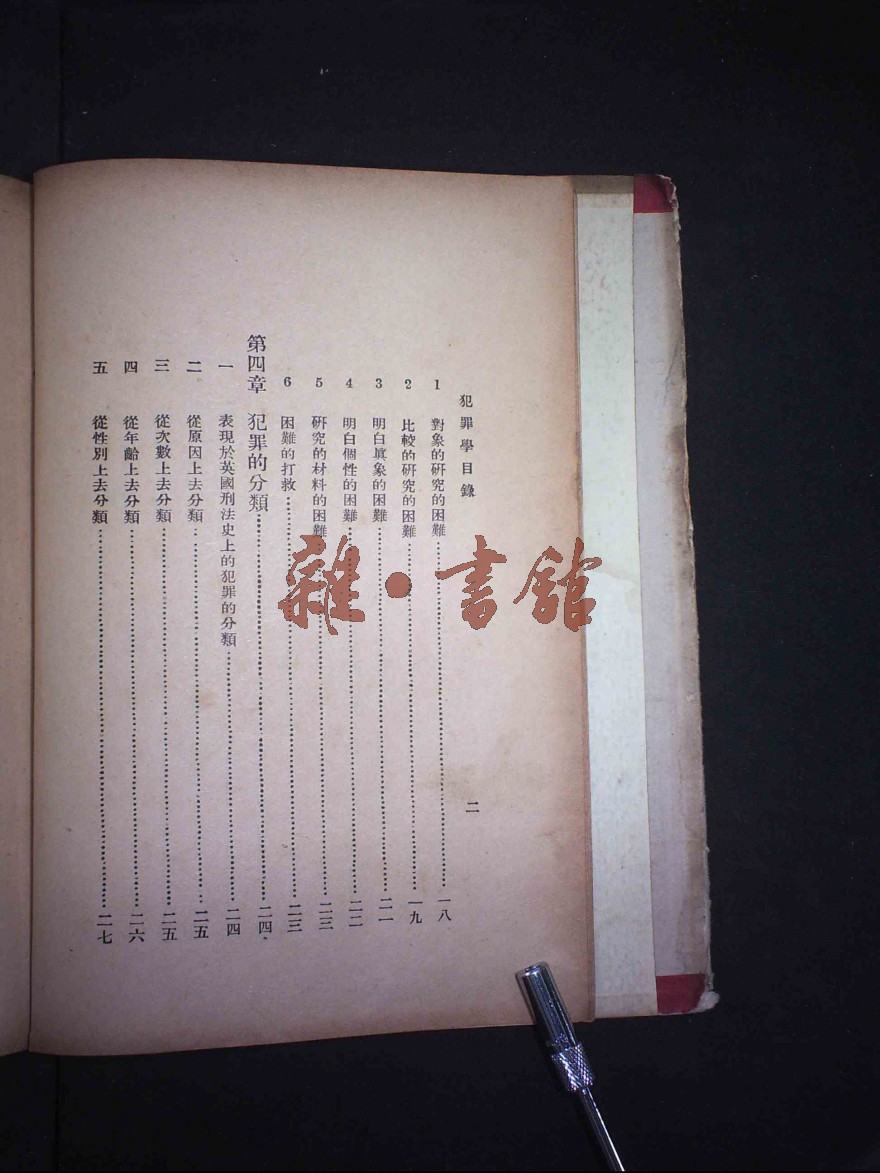 犯罪學目錄
二
1 對象的硏究的困難 一八
2 比較的硏究的困難 一九
3 明白眞象的困難 二一
4 明白個性的困難 二二
5 硏究的材料的困難 二三
6 困難的打救 二三
第四章 犯罪的分類 二四
一 表現於英國刑法史上的犯罪的分類 二四
二 從原因上去分類 二五
三 從次數上去分類 二五
四 從年齡上去分類 二六
五 從性別上去分類 二七
雜·書館